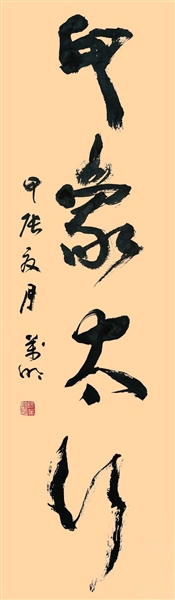 印象太行
甲辰夏月 万明